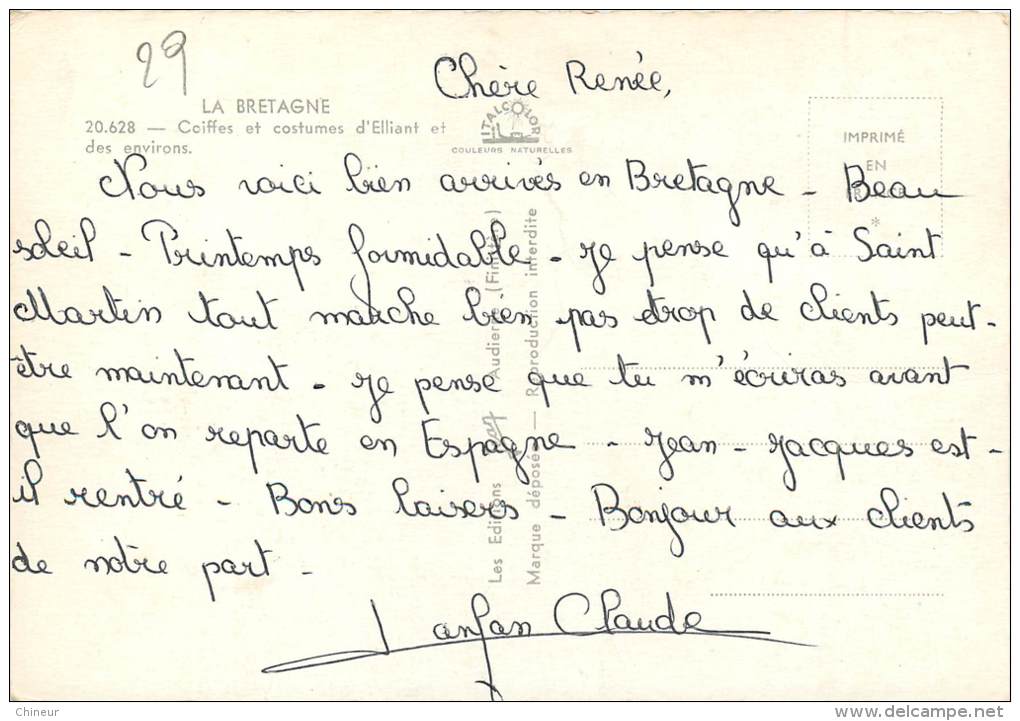 29
Chère Renée,
LA BRETAGNE
20.628 — Coiffes et costumes d'Elliant et
des environs.
ITALCOLOR
COULEURS NATURELLES
IMPRIMÉ
EN
*
Nous voici bien arrivés en Bretagne - Beau
soleil - Printemps formidable - Je pense qu'à Saint
Martin tout marche bien pas trop de clients peut-
être maintenant - Je pense que tu m'écriras avant
que l'on reparte en Espagne - Jean-Jacques est-
il rentré - Bons baisers - Bonjour aux clients
de notre part -
Claude
Les Editions Audierne (Finistère)
Marque déposée — Reproduction interdite
Chineur
delcampe.net